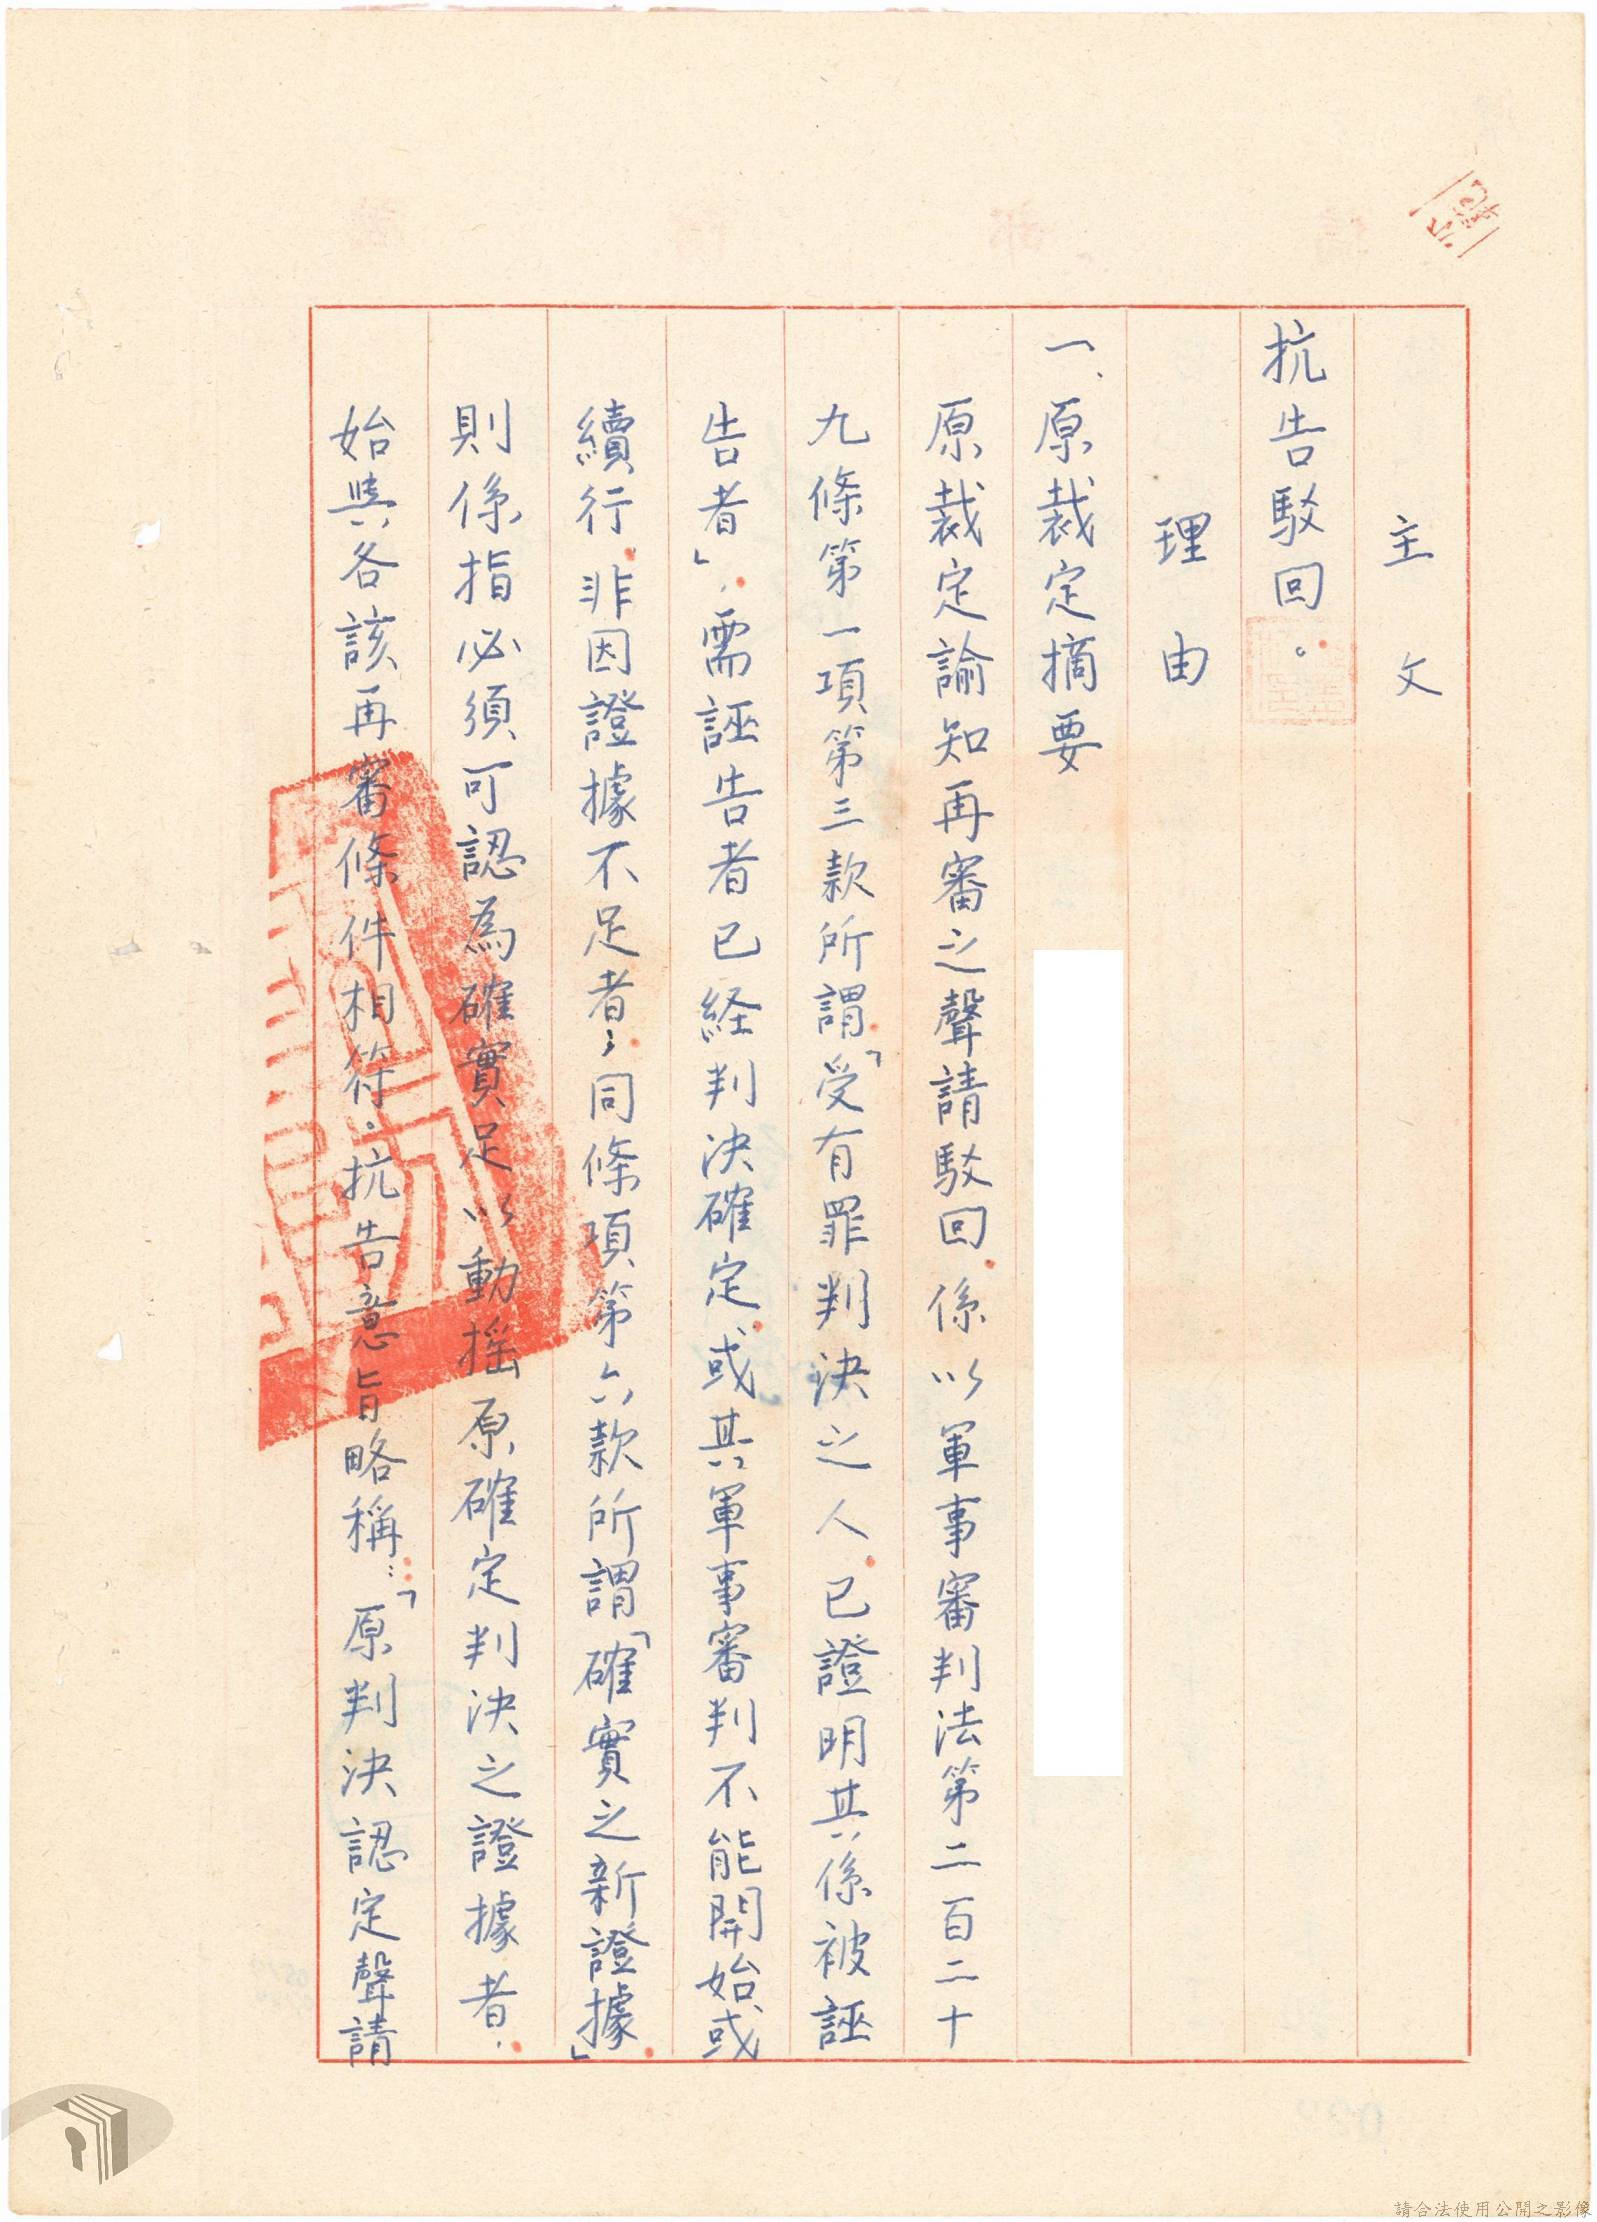 主文
抗告駁回。
理由
一、原裁定摘要
原裁定諭知再審之聲請駁回，係以軍事審判法第二百二十
九條第一項第三款所謂「受有罪判決之人，已證明其係被誣
告者」，需誣告者已経判決確定，或其軍事審判不能開始或
續行，非因證據不足者；同條項第六款所謂「確實之新證據」，
則係指必須可認為確實足以動搖原確定判決之證據者，
始與各該再審條件相符。抗告意旨略稱：「原判決認定聲請
請合法使用公開之影像